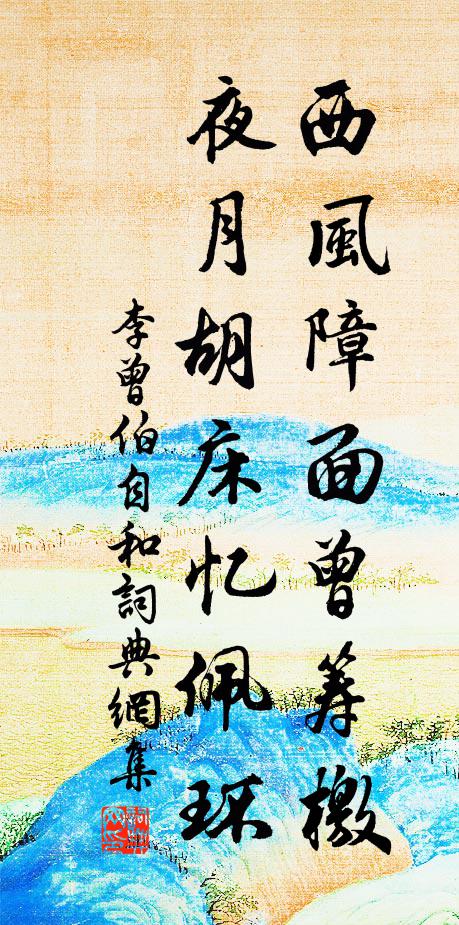 西風障面曾筹檄
夜月胡床忆佩珎
李曾伯自和詞典網集